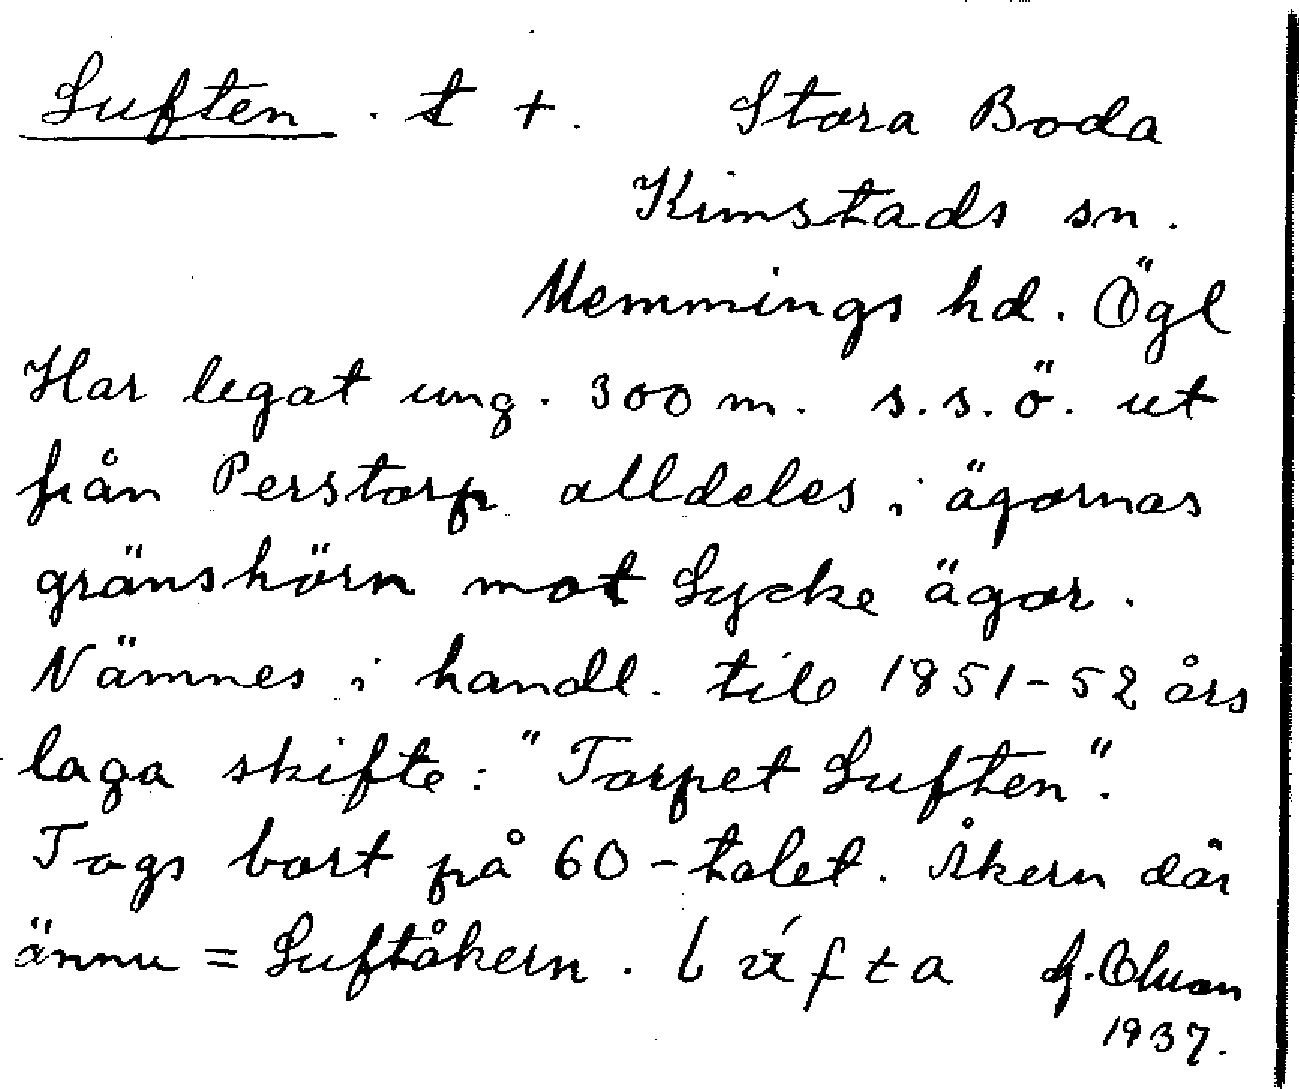 Luften. t +. Stora Boda
Kimstads sn.
Memmings hd. Ögl
Har legat ung. 300 m. s.s.ö. ut
från Perstorp alldeles i ägornas
gränshörn mot Lycke ägor.
Nämnes i handl. till 1851-52 års
laga skifte: "Torpet Luften".
Togs bort på 60-talet. Åkern där
ännu = Luftåkern.
1937.